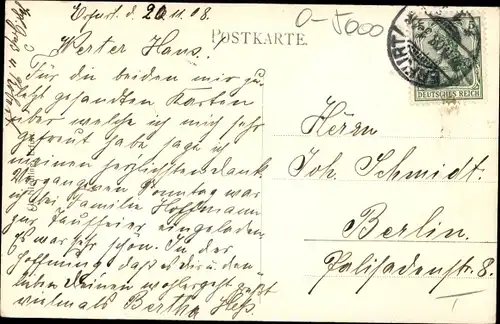 Erfurt d. 20.11.08.
O-5000
POSTKARTE.
Werter Hans!
Für die beiden mir zu-
letzt gesandten Karten
über welche ich mich sehr
gefreut habe sage ich
meinen herzlichsten Dank
Vergangenen Sonntag war
ich bei Familie Hoffmann
zur Tauffeier eingeladen
Es war sehr schön. In der
Hoffnung daß es dir u. den
lieben Deinen wohlergeht grüßt
vielmals Bertha Heß.
ERFURT
DEUTSCHES REICH
Herrn
Joh. Schmidt.
Berlin.
Palisadenstr. 8.
I